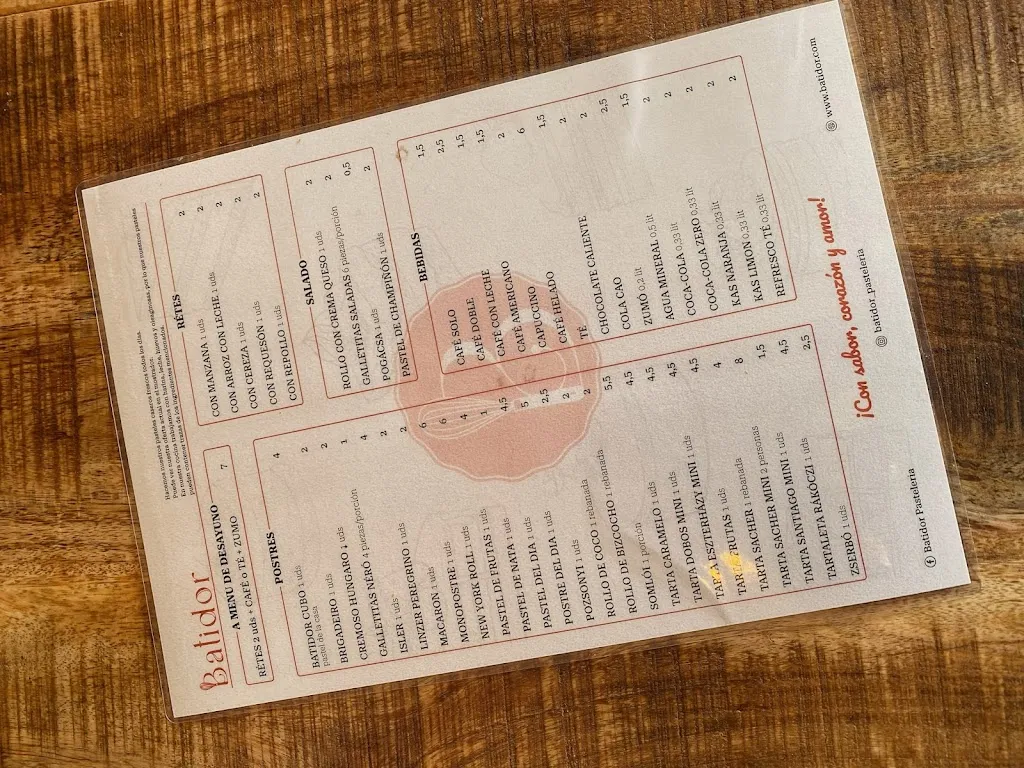 Batidor
Hacemos nuestros pasteles caseros frescos todos los días.
Puede ver nuestra oferta actual en el mostrador.
En nuestra cocina trabajamos con harina, leche, huevos y oleaginosas, por lo que nuestros pasteles
Pueden contener trazas de los ingredientes mencionados.
A MENU DE DESAYUNO
RÉTES 2 uds + CAFÉ o TÉ + ZUMO 7
POSTRES
BATIDOR CUBO 1 uds 4
pastel de la casa
BRIGADEIRO 1 uds 2
CREMOSO HUNGARO 1 uds 2
GALLETITAS NÉRÓ 4 piezas/porción 1
ISLER 1 uds 4
LINZER PEREGRINO 1 uds 2
MACARON 1 uds 2
MONOPOSTRE 1 uds 6
NEW YORK ROLL 1 uds 6
PASTEL DE FRUTAS 1 uds 4
PASTEL DE NATA 1 uds 1
PASTEL DEL DIA 1 uds 4,5
POSTRE DEL DIA 1 uds 5
POZSONYI 1 uds 2,5
ROLLO DE COCO 1 rebanada 2
ROLLO DE BIZCOCHO 1 rebanada 2
SOMLÓI 1 porción 5,5
TARTA CARAMELO 1 uds 4,5
TARTA DOBOS MINI 1 uds 4,5
TARTA ESZTERHÁZY MINI 1 uds 4,5
TARTA FRUTAS 1 uds 4,5
TARTA SACHER 1 rebanada 4
TARTA SACHER MINI 2 personas 8
TARTA SANTIAGO MINI 1 uds 1,5
TARTALETA RÁKÓCZI 1 uds 4,5
ZSERBÓ 1 uds 2,5
RÉTES
CON MANZANA 1 uds 2
CON ARROZ CON LECHE 1 uds 2
CON CEREZA 1 uds 2
CON REQUESÓN 1 uds 2
CON REPOLLO 1 uds 2
SALADO
ROLLO CON CREMA QUESO 1 uds 2
GALLETITAS SALADAS 6 piezas/porción 2
POGÁCSA 1 uds 0,5
PASTEL DE CHAMPIÑÓN 1 uds 2
BEBIDAS
CAFÉ SOLO 1,5
CAFÉ DOBLE 2,5
CAFÉ CON LECHE 1,5
CAFÉ AMERICANO 1,5
CAPUCCINO 2
CAFÉ HELADO 6
TÉ 1,5
CHOCOLATE CALIENTE 2
COLA CAO 2
ZUMÓ 0,2 lit 2,5
AGUA MINERAL 0,5 lit 1,5
COCA-COLA 0,33 lit 2
COCA-COLA ZERO 0,33 lit 2
KAS NARANJA 0,33 lit 2
KAS LIMON 0,33 lit 2
REFRESCO TÉ 0,33 lit 2
¡Con sabor, corazón y amor!
Batidor Pasteleria
batidor_pasteleria
www.batidor.com